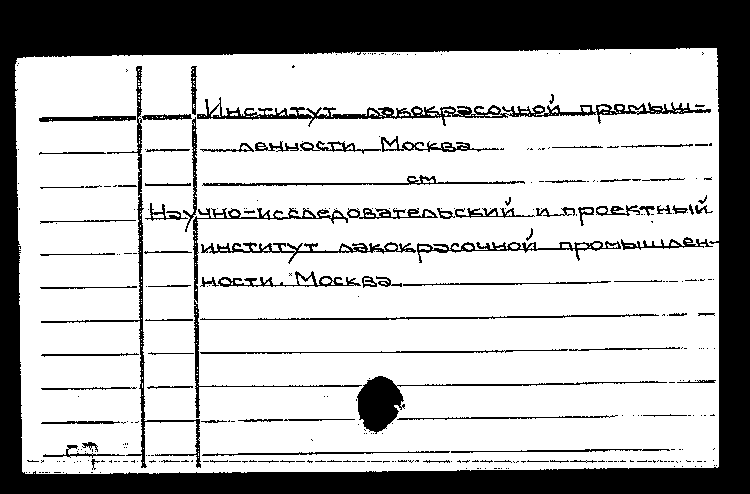 Институт лакокрасочной промыш-
ленности. Москва
см
Научно-исследовательский и проектный
институт лакокрасочной промышлен-
ности. Москва.